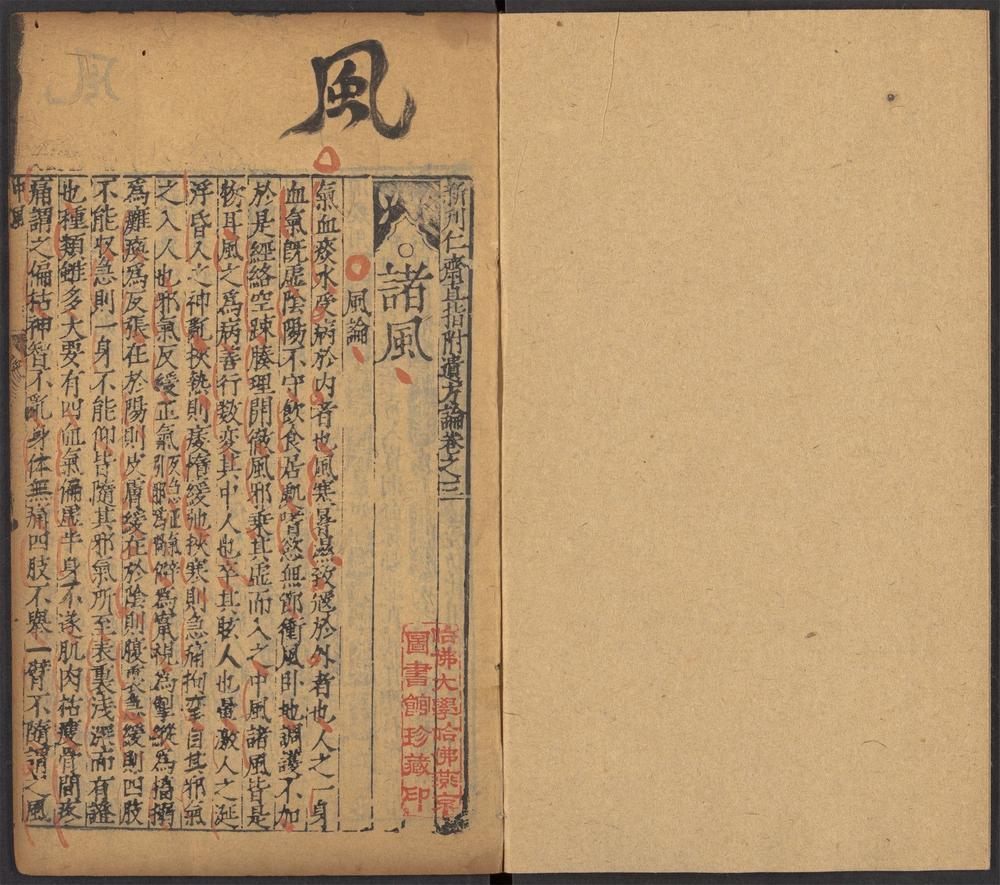 風
新刊仁齋直指附遺方論卷之三
諸風
風論
氣血痰水受病於内者也風寒暑濕致寇於外者也人之一身
血氣既虛陰陽不守飲食居處嗜慾無節衝風卧地調護不加
於是經絡空踈腠理開微風邪乗其虛而入之中風諸風皆是
物耳風之爲病善行数变其中人也卒其眩人也暈激人之涎
浮昏人之神亂挾熱則痿惰緩弛挾寒則急痛拘攣自其邪氣
之入人也邪氣反緩正氣爲癱瘓爲反張在於陽則皮膚緩在於陰則腹裏急緩則四肢
不能収急則一身不能仰皆隨其邪氣所至表裏浅深而有證
也種類雖多大要有四血氣偏虛半身不遂肌肉枯瘦骨間疼
痛謂之偏枯神智不亂身体無痛四肢不舉一臂不隨謂之風
中風
哈佛大學哈佛燕京
圖書館珍藏印